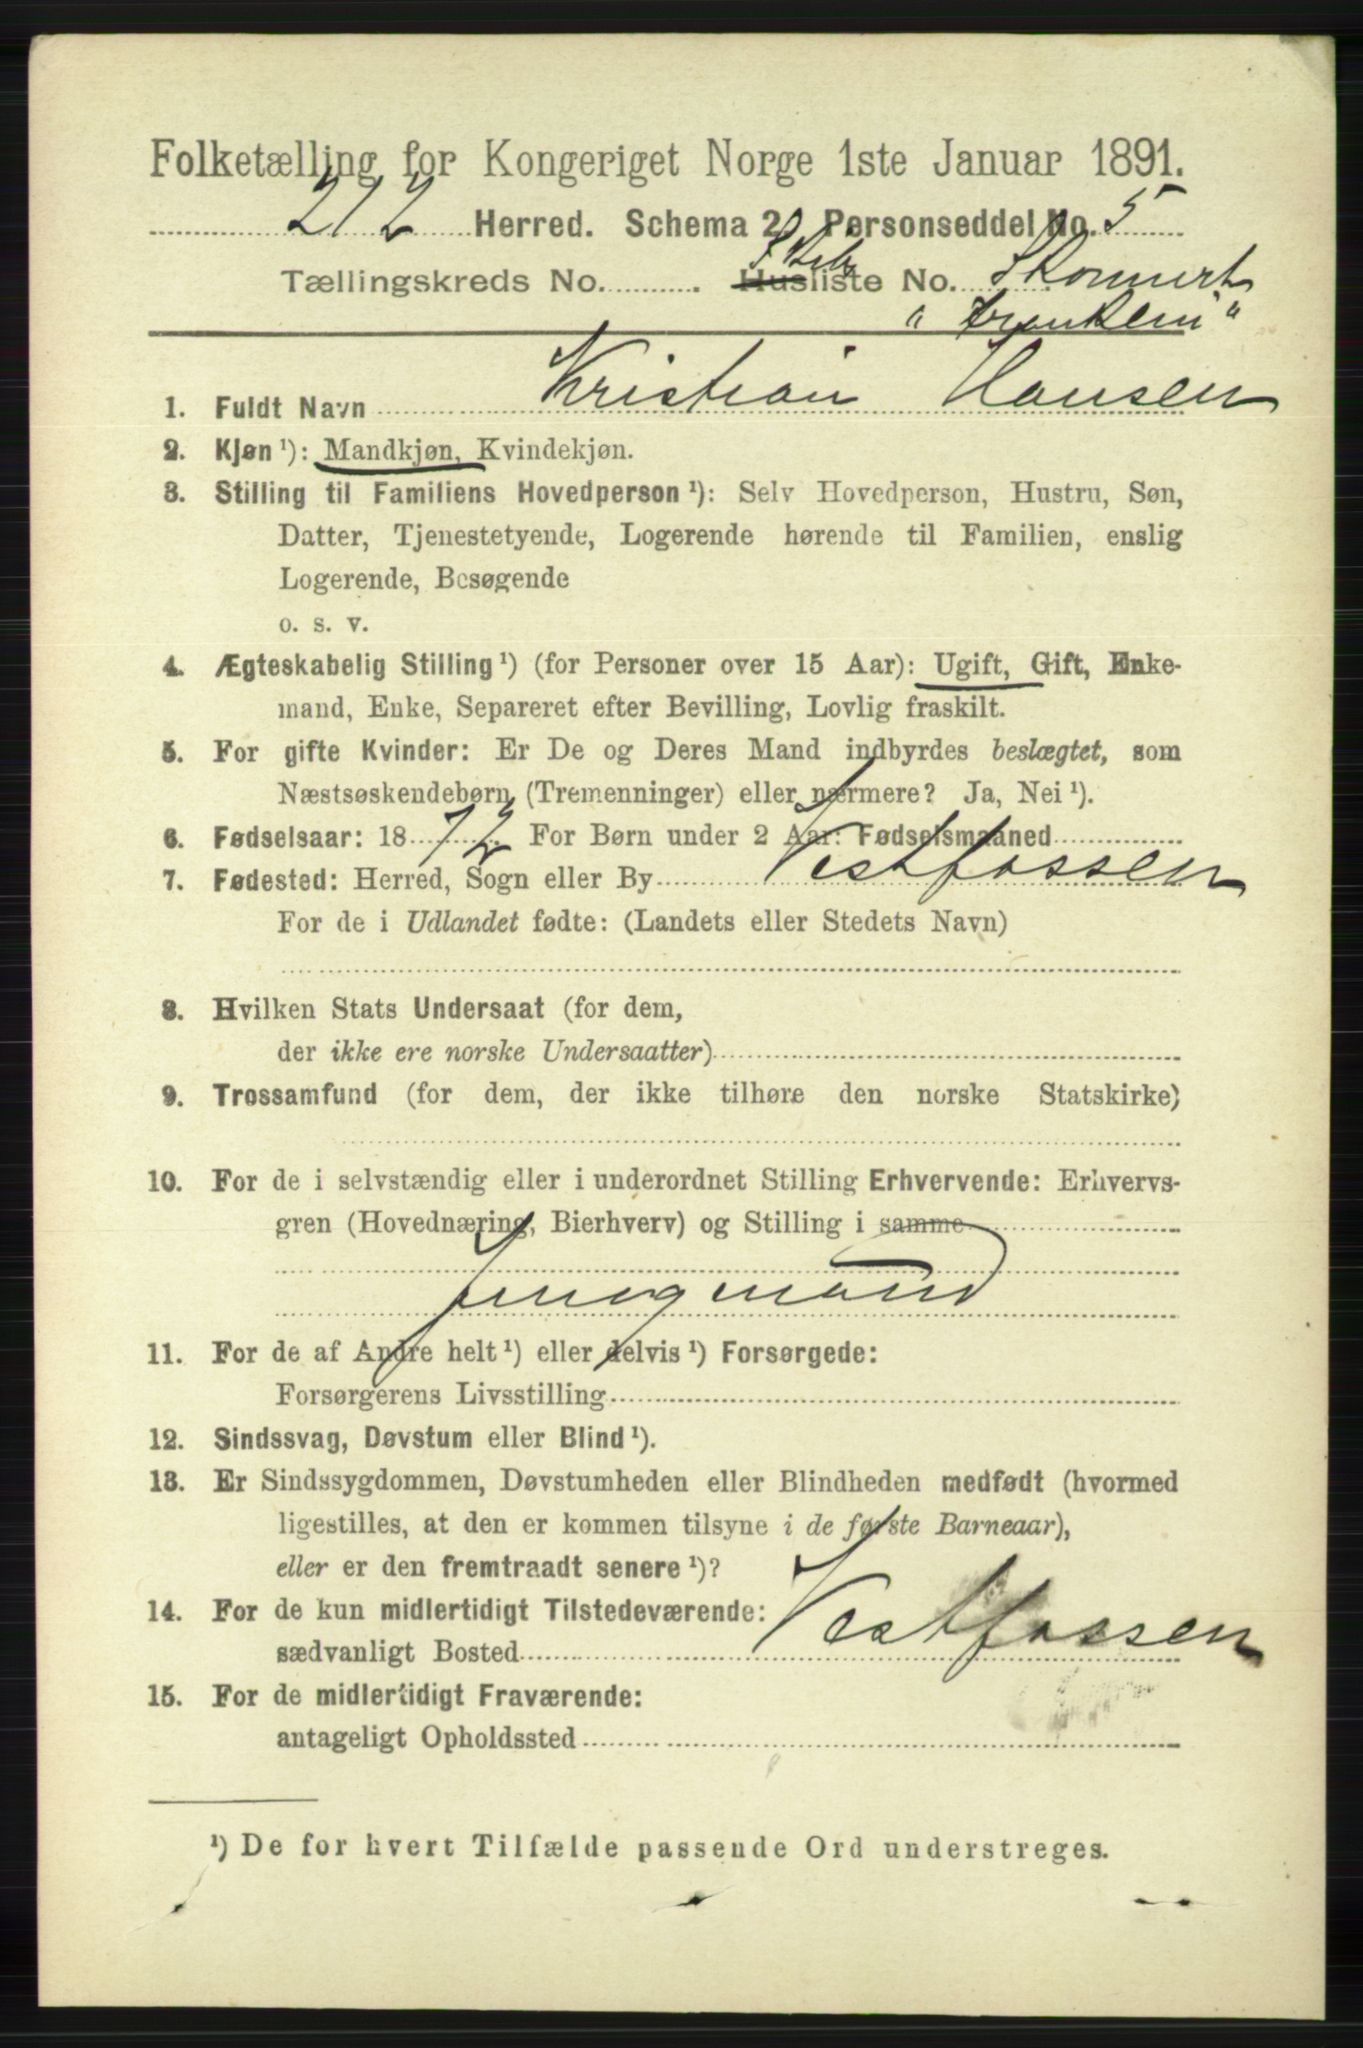 Folketælling for Kongeriget Norge 1ste Januar 1891.
212 Herred. Schema 2. Personseddel No. 5
Tællingskreds No. Husliste No. Skonnert
"Franklin"
1. Fuldt Navn Kristian Hansen
2. Kjøn ¹): Mandkjøn, Kvindekjøn.
3. Stilling til Familiens Hovedperson ¹): Selv Hovedperson, Hustru, Søn,
Datter, Tjenestetyende, Logerende hørende til Familien, enslig
Logerende, Besøgende
o. s. v.
4. Ægteskabelig Stilling ¹) (for Personer over 15 Aar): Ugift, Gift, Enke-
mand, Enke, Separeret efter Bevilling, Lovlig fraskilt.
5. For gifte Kvinder: Er De og Deres Mand indbyrdes beslægtet, som
Næstsøskendebørn (Tremenninger) eller nærmere? Ja, Nei ¹).
6. Fødselsaar: 1872 For Børn under 2 Aar: Fødselsmaaned
7. Fødested: Herred, Sogn eller By Vestfossen
For de i Udlandet fødte: (Landets eller Stedets Navn)
8. Hvilken Stats Undersaat (for dem,
der ikke ere norske Undersaatter)
9. Trossamfund (for dem, der ikke tilhøre den norske Statskirke)
10. For de i selvstændig eller i underordnet Stilling Erhvervende: Erhvervs-
gren (Hovednæring, Bierhverv) og Stilling i samme
Jungmand
11. For de af Andre helt ¹) eller delvis ¹) Forsørgede:
Forsørgerens Livsstilling
12. Sindssvag, Døvstum eller Blind ¹).
13. Er Sindssygdommen, Døvstumheden eller Blindheden medfødt (hvormed
ligestilles, at den er kommen tilsyne i de første Barneaar),
eller er den fremtraadt senere ¹)?
14. For de kun midlertidigt Tilstedeværende:
sædvanligt Bosted Vestfossen
15. For de midlertidigt Fraværende:
antageligt Opholdssted
¹) De for hvert Tilfælde passende Ord understreges.